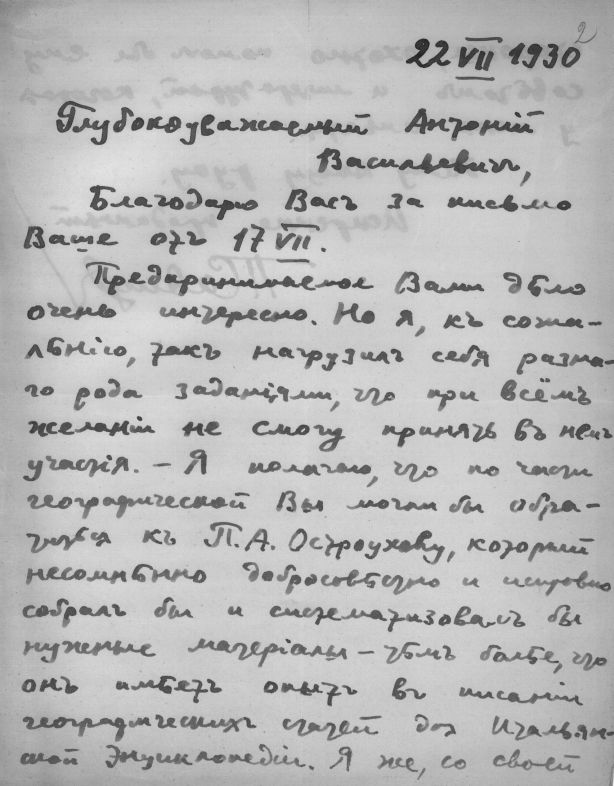 2
22 VII 1930
Глубокоуважаемый Антонiй
Васильевичъ,
Благодарю Васъ за письмо
Ваше отъ 17 VII.
Предпринимаемое Вами дѣло
очень интересно. Но я, къ сожа-
лѣнiю, такъ нагрузилъ себя разна-
го рода заданiями, что при всёмъ
желанiи не смогу принять въ немъ
участiя. – Я полагаю, что по части
географической Вы могли бы обра-
титься къ П. А. Остроухову, который
несомнѣнно добросовѣстно и исправно
собралъ бы и систематизовалъ бы
нужные матерiалы – тѣмъ болѣе, что
онъ имѣетъ опытъ въ писанiи
географическихъ статей для Итальян-
ской Энциклопедiи. Я же, со своей